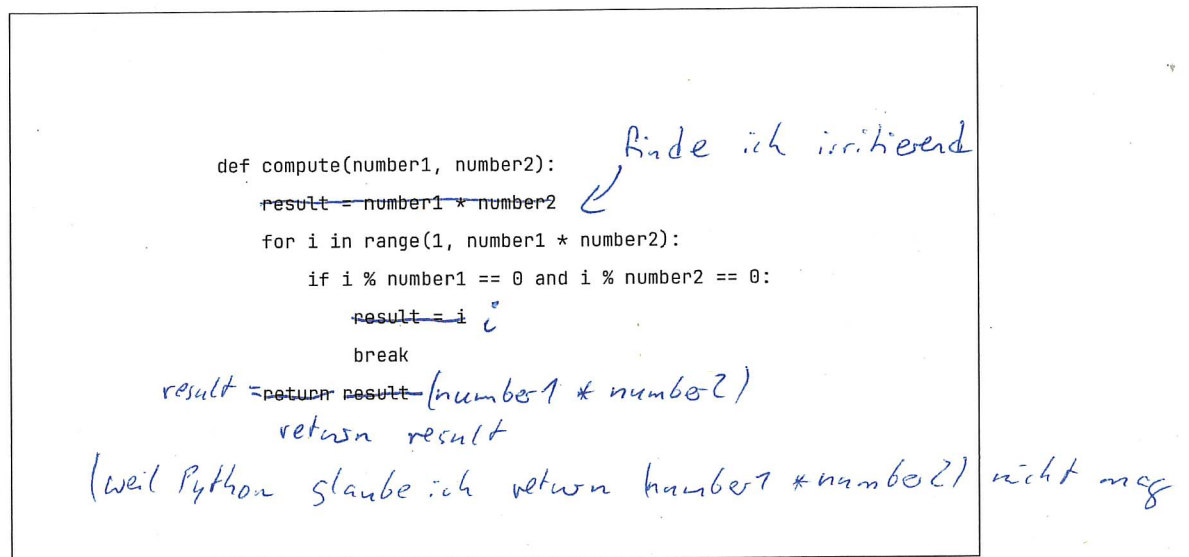 finde ich irritierend
def compute(number1, number2):
result = number1 * number2
for i in range(1, number1 * number2):
if i % number1 == 0 and i % number2 == 0:
result = i i
break
result = return result (number1 * number2)
return result
(weil Python glaube ich return (number1 * number2) nicht mag